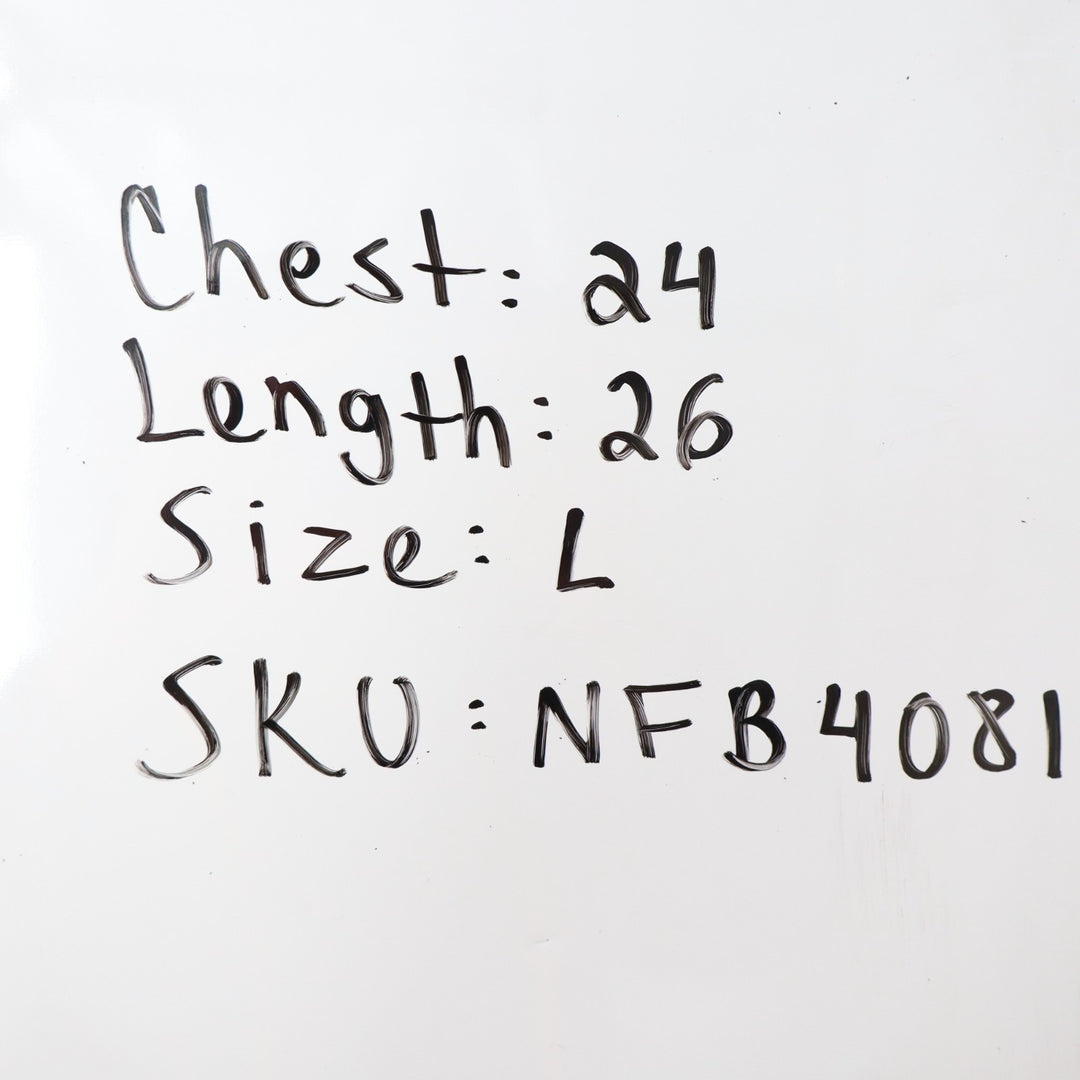 Chest: 24
Length: 26
Size: L
SKU: NFB4081